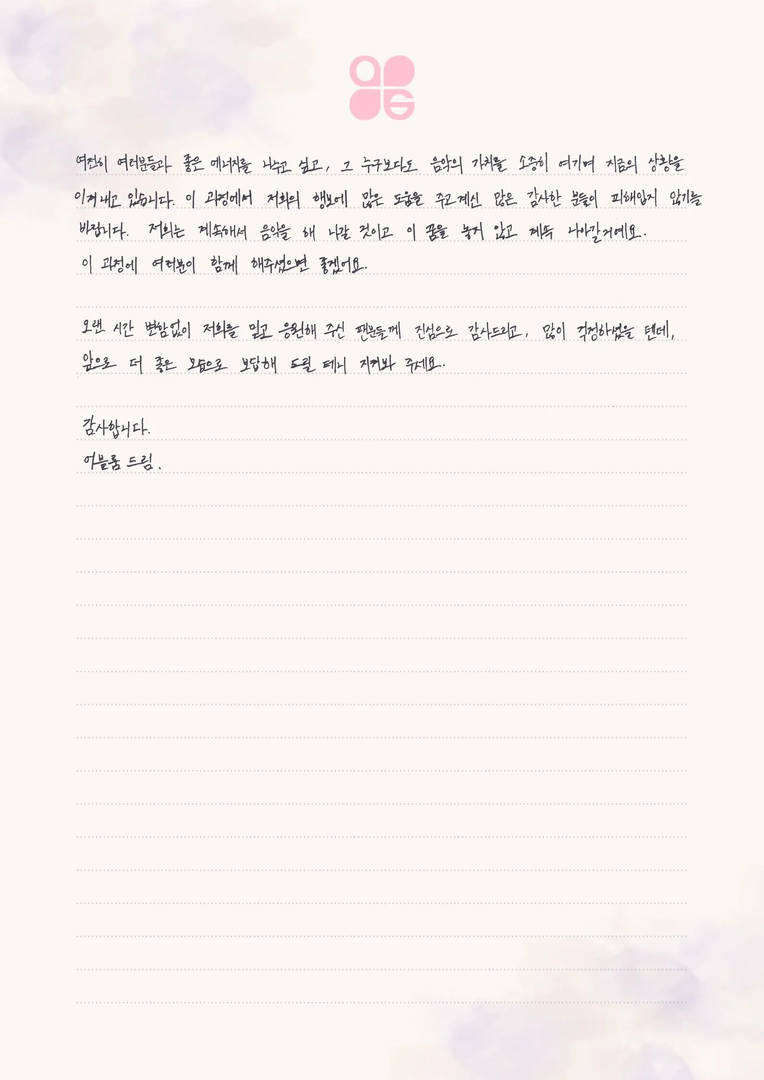 여전히 여러분들과 좋은 에너지를 나누고 싶고, 그 누구보다도 음악의 가치를 소중히 여기며 지금의 상황을
이겨내고 있습니다. 이 과정에서 저희의 행보에 많은 도움을 주고 계신 많은 감사한 분들이 피해입지 않기를
바랍니다. 저희는 계속해서 음악을 해 나갈 것이고 이 꿈을 놓지 않고 계속 나아갈거예요.
이 과정에 여러분이 함께 해주셨으면 좋겠어요.
오랜 시간 변함없이 저희를 믿고 응원해 주신 팬분들께 진심으로 감사드리고, 많이 걱정하셨을 텐데,
앞으로 더 좋은 모습으로 보답해 드릴 테니 지켜봐 주세요.
감사합니다.
어블룸 드림.